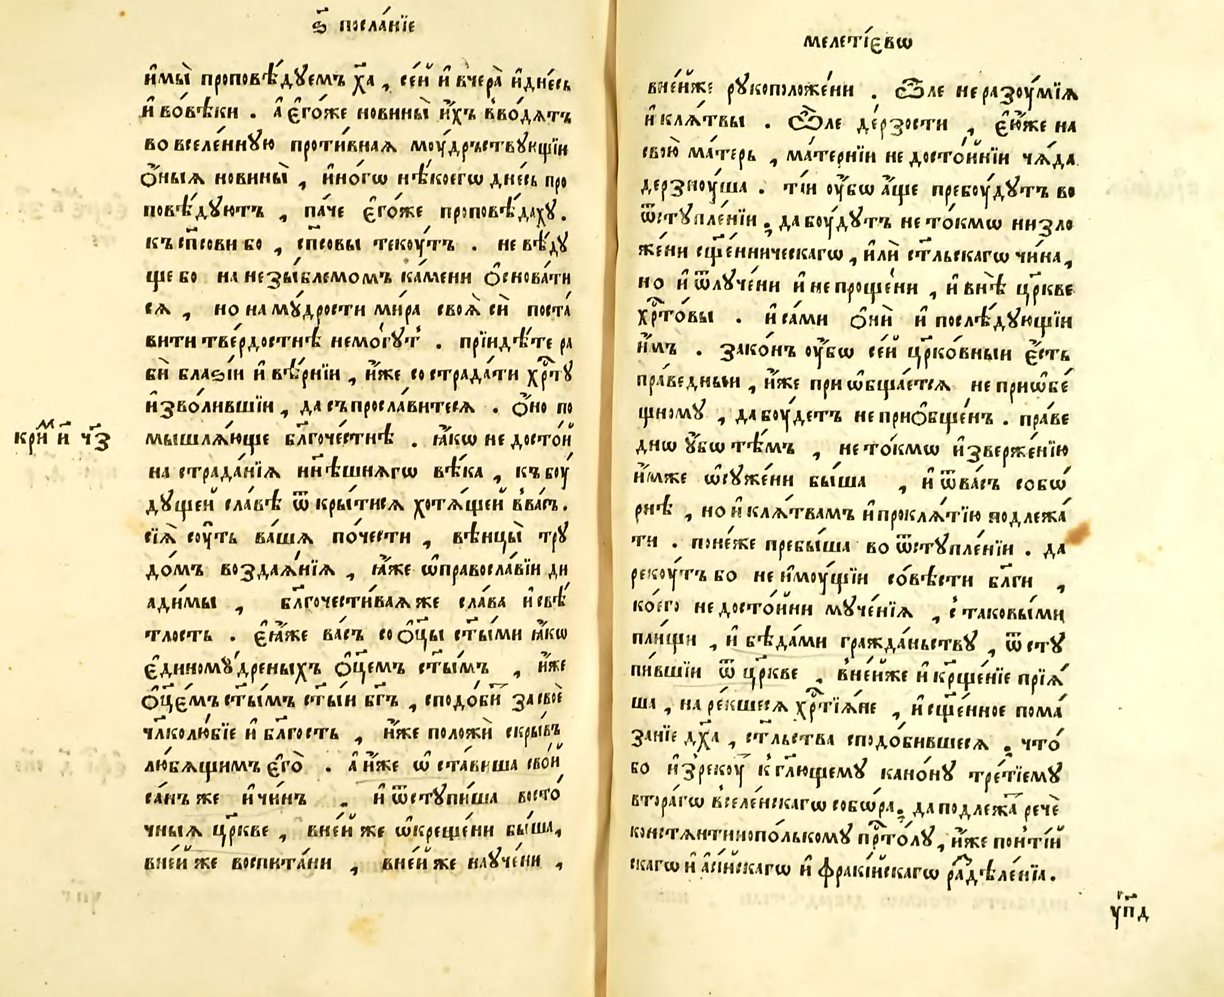 ѕ҃ посла́нїе
и҆мы̀ проповѣ́дуемъ х҃а , се́й и҆ вчера̀ и҆дне́сь
и҆ вовѣ́ки . а҆ є҆го́же новины̀ и҆́хъ вво́дятъ
во вселе́ннꙋю проти́внаѧ моу́дрьствꙋющїи
ѻ҆́ныѧ новины̀ , и҆но́гѡ нѣ́коегѡ дне́сь про
повѣ́дꙋютъ , па́че є҆го́же проповѣ́дахꙋ .
къ сп҃сови бо , сп҃совы текоу́тъ . не вѣ́дꙋ
ще бо на незы́блемомъ ка́мени ѻ҆снова́ти
сѧ , но на мꙋ́дрости ми́ра своѧ̀ сѝ поста́
вити тве́рдостнѣ немо́гꙋт . прїидѣ́те ра
бѝ благі́и и҆ вѣ́рнїи , и҆́же со страда́ти хрⷭ҇тꙋ
и҆зво́лившїи , да съпросла́витесѧ . ѻ҆́но по
мышлѧ́юще бл҃гоче́стнѣ . ꙗ҆́кѡ не досто́й
на страда́нїѧ нн҃ѣшнѧгѡ вѣ́ка , къ боу́
дꙋщей сла́вѣ ѿ кры́тисѧ хотѧ́щей вва́съ .
сїѧ̀ соу́ть ва́шѧ по́чести , вѣнцы̀ трꙋ
до́мъ воздаѧ́нїѧ , ꙗ҆́же ѡ҆правосла́вїи ди
адимы , бл҃гочести́ваѧ же сла́ва и҆ свѣ́
тлость . є҆ю́же ва́съ со ѻ҆ц҃ы ст҃ы́ми ꙗ҆́кѡ
є҆диномꙋ́дреныхъ ѻ҆ц҃емъ ст҃ы́мъ , и҆́же
ѻ҆ц҃е́мъ ст҃ымъ ст҃ы́и бг҃ъ , сподо́би за своѐ
чл҃колю́бїе и҆ бл҃гость , и҆́же положѝ скры́въ
лю́бѧщимъ є҆го̀ . а҆ и҆́же ѡ҆ ста́виша сво́й
са́нъ же и҆ чи́нъ , и҆ ѿступи́ша восто́
чныѧ цр҃кве , вне́й же ѡ҆креще́ни бы́ша,
вне́й же воспита́ни , вне́й же наꙋче́ни ,
кри́м и҆ ч҃з
мелеті́евѡ
вне́йже рꙋкоположе́ни . Ѽле не разоу́мїѧ
и҆ клѧ́твы . Ѽле де́рзости , є҆ю́же на
свою̀ ма́терь , ма́тернїи не досто́йнїи чѧ́да
дерзноу́ша . ті́и оу҆́бѡ а҆́ще пребоу́дꙋтъ во
ѿстꙋпле́нїи , да боу́дꙋтъ не то́кмѡ низло
же́ни сщ҃е́нническагѡ , и҆лѝ ст҃льскагѡ чи́на ,
но и҆ ѿлꙋче́ни и҆ не проще́ни , и҆ внѣ̀ цр҃кве
хрⷭ҇то́вы . и҆ са́ми ѻ҆нѝ и҆ послѣ́дꙋющїи
и҆́мъ . зако́нъ оу҆́бѡ се́й цр҃ко́вныи є҆́сть
пра́ведныи , и҆́же приѡбща́етсѧ не приѡбе́
щномꙋ , да боу́детъ не приѻбще́нъ . пра́ве
днѡ ꙋ҆́бѡ тѣ́мъ , не то́кмѡ и҆зверже́нїю
и҆́мже ѡ҆сꙋже́ни бы́ша , и҆ ѿва́съ собѡ́
рнѣ , но и҆ клѧ́твамъ и҆ проклѧ́тїю подлежа́
ти . поне́же пребы́ша во ѿстꙋпле́нїи . да
рекоу́тъ бо не и҆моу́щїи со́вѣсти бл҃ги ,
ко́его не досто́йни мꙋче́нїѧ , с таковы́ми
пли́щи , и҆ бѣда́ми гражда́ньствꙋ , ѿстꙋ
пи́вшїи ѿ цр҃кве , вне́йже и҆ крⷭ҇ще́нїе прїѧ́
ша , на ре́кшесѧ хрⷭ҇тїѧ́не , и҆ сщ҃е́нное пома́
занїе дх҃а , ст҃льства сподо́бившесѧ , что́
бо и҆зрекоу́ к гл҃ющемꙋ кано́нꙋ тре́тїемꙋ
втора́гѡ вселе́нскагѡ собѡ́ра , да подлежа́ речѐ
констѧнтинопо́лькомꙋ прⷭ҇то́лꙋ , и҆́же понті́й
скагѡ и҆ а҆сі́йскагѡ и҆ фраки́йскагѡ раздѣле́нїа .
ꙋ҃пд